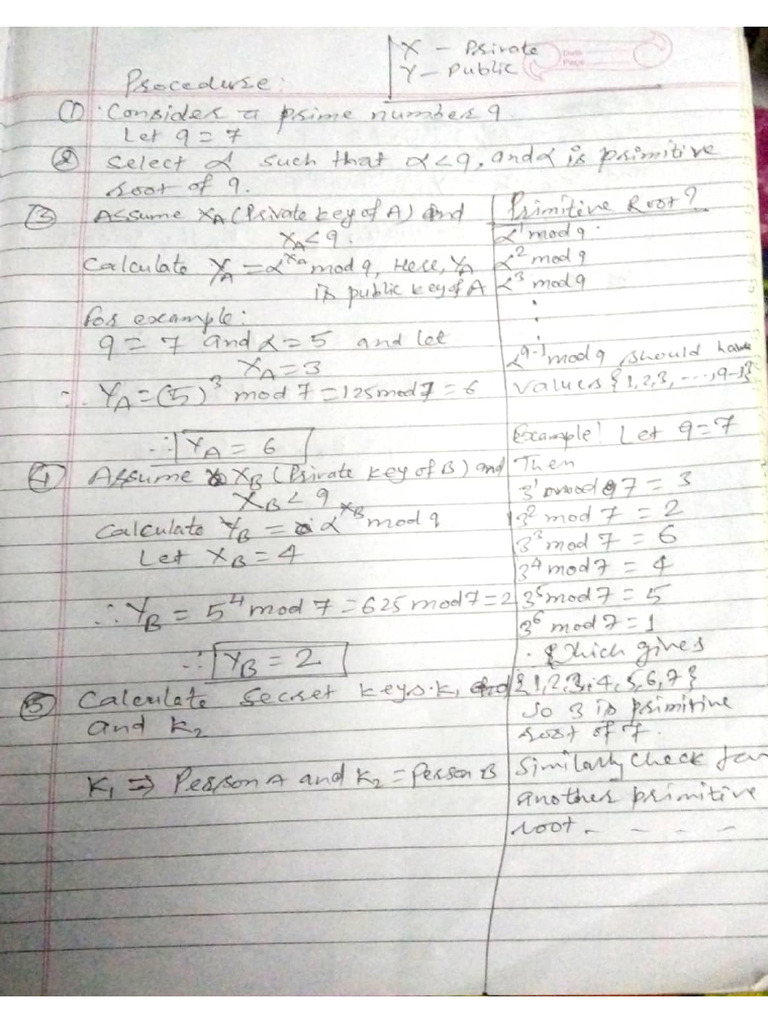 X - Private
Y - Public
Date
Page
Procedure:
① Consider a prime number q
Let q = 7
② Select α such that α < q, and α is primitive
root of q.
③ Assume XA (Private key of A) and
XA < q.
Calculate YA = α^Xa mod q, Here, YA
is public key of A
for example:
q = 7 and α = 5 and let
XA = 3
∴ YA = (5)^3 mod 7 = 125 mod 7 = 6
∴ YA = 6
④ Assume XB (Private key of B) and
XB < q
Calculate YB = α^XB mod q
Let XB = 4
∴ YB = 5^4 mod 7 = 625 mod 7 = 2
∴ YB = 2
⑤ Calculate secret keys k1 and
and k2
K1 ⇒ Person A and K2 = Person B
Primitive Root?
α^1 mod q
α^2 mod q
α^3 mod q
.
.
.
α^q-1 mod q should have
values {1,2,3, ----, q-1}
Example! Let q = 7
Then
3^1 mod 7 = 3
3^2 mod 7 = 2
3^3 mod 7 = 6
3^4 mod 7 = 4
3^5 mod 7 = 5
3^6 mod 7 = 1
. Which gives
{1,2,3,4,5,6,7}
So 3 is primitive
root of 7.
Similarly check for
another primitive
root - - - -